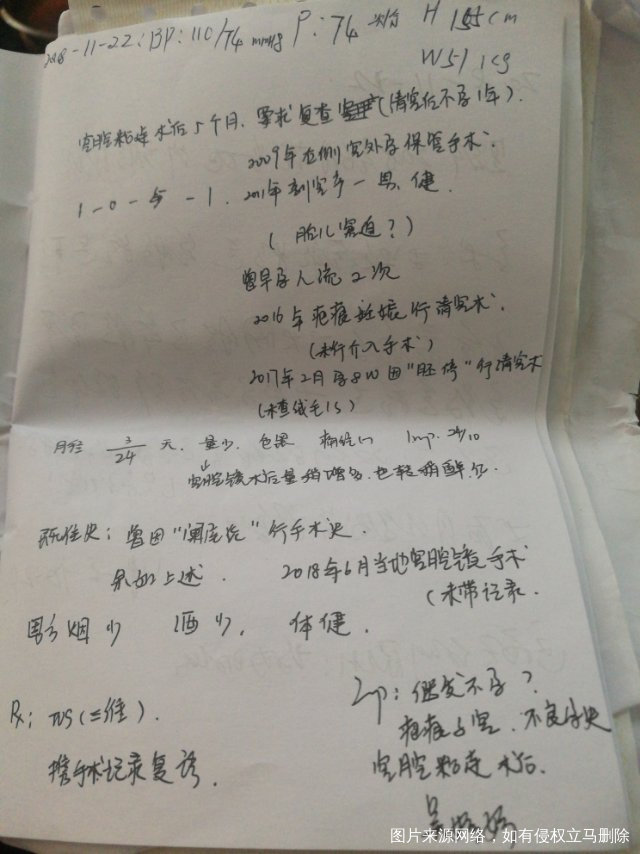 2018-11-22: BP: 110/74 mmHg P: 74 次/分 H 155cm
W 51kg
宫腔粘连术后5个月. 要求复查(清宫后不孕1年).
2009年右侧宫外孕保守手术.
1-0-5-1. 2011年剖宫产一男, 健.
(胎儿窘迫?)
曾早孕人流2次
2016年疤痕妊娠行清宫术.
(未行介入手术)
2017年2月孕8W因"胚停"行清宫术
(未查绒毛)
月经 3/24 天. 量少. 色黑 Lmp.
宫腔镜术后量稍增多, 色
既往史: 曾因"阑尾炎"行手术史.
余如上述. 2018年6月当地宫腔镜手术
(未带记录.
男方烟(少) 酒(少), 体健.
Rx: TVS(三维).
携手术记录复诊.
Imp: 继发不孕?
疤痕子宫. 不良孕史
宫腔粘连术后.
图片来源网络,如有侵权立马删除